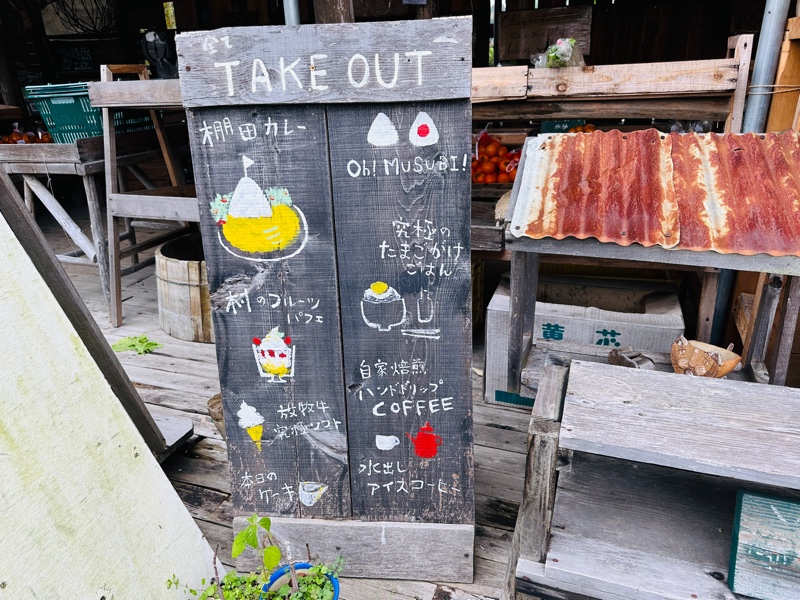 全て
TAKE OUT
棚田カレー
村のフルーツ
パフェ
放牧牛
究極ソフト
本日の
ケーキ
Oh! MUSUBI!
究極の
たまごがけ
ごはん
自家焙煎
ハンドドリップ
COFFEE
水出し
アイスコーヒー
黄